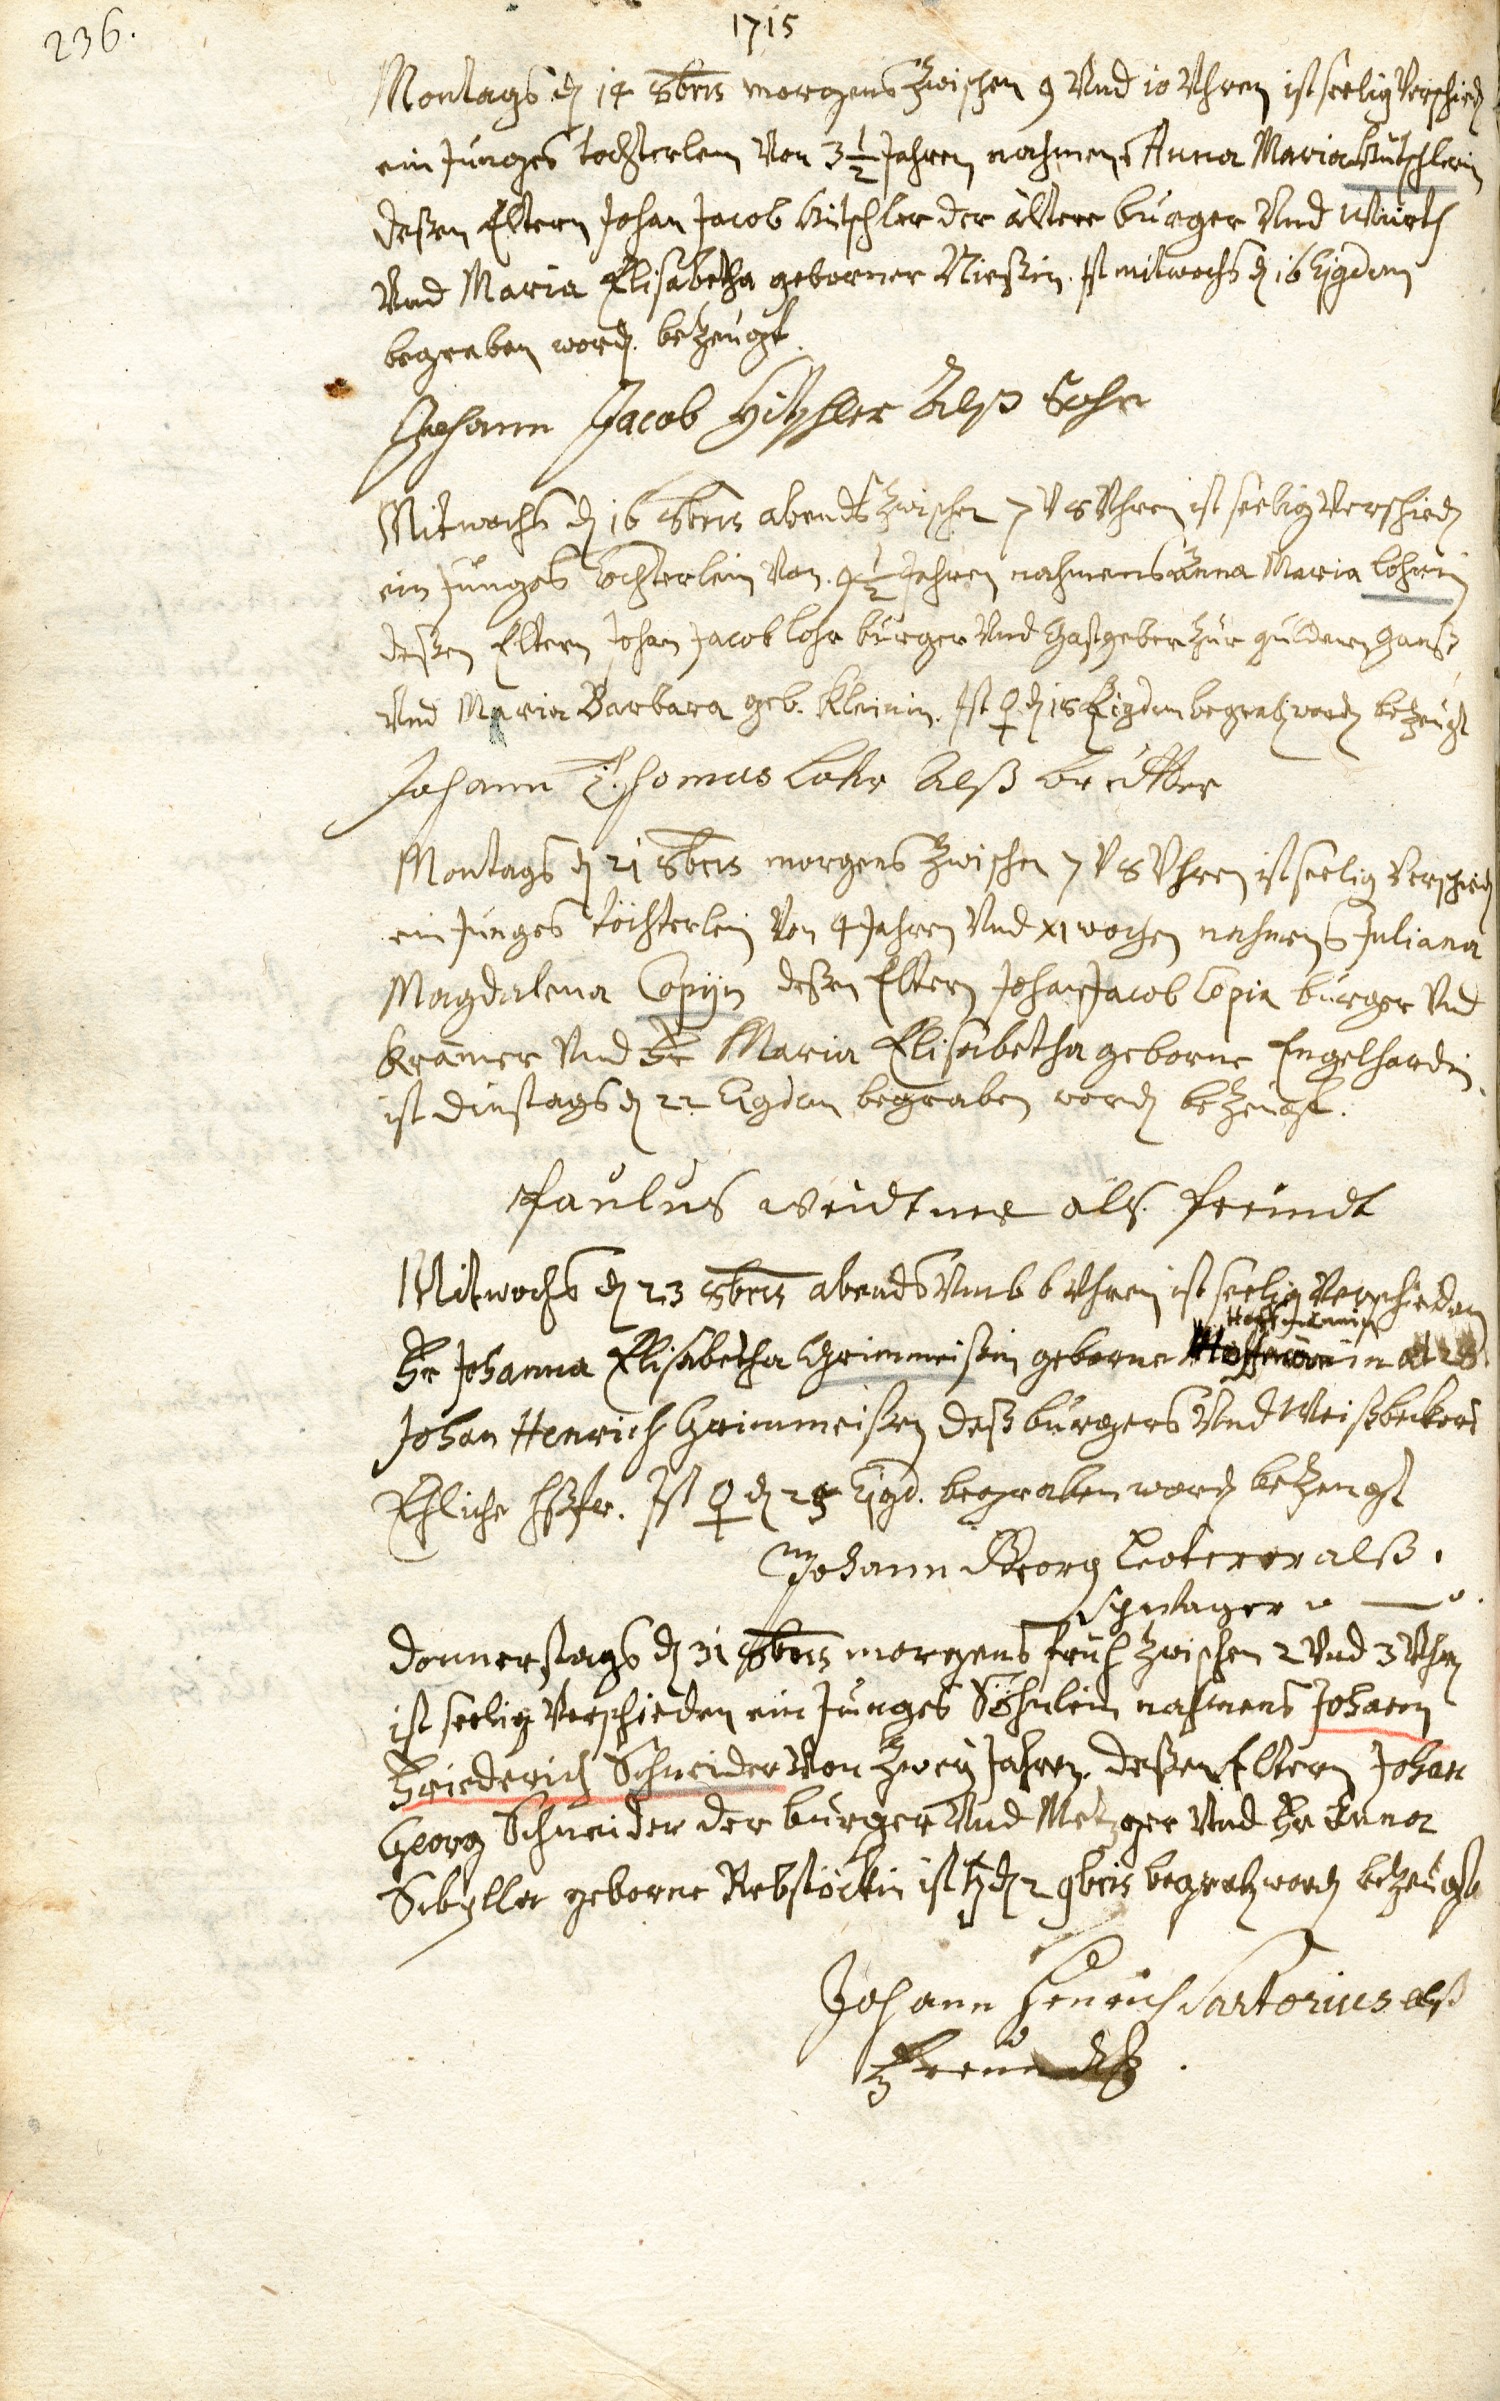 236.
1715
Montags d 14 8bris morgens Zwischen 9 Vnd 10 Vhren ist seelig Verschied
ein Junges tochterlein Von 3 1/2 Jahren nahmens Anna Maria
deßen Eltern Johan Jacob der ältere burger Vnd Würth
Vnd Maria Elisabetha geborner Nießin. Ist mitwochs d 16 Ejgdem
begraben word. beZeugt.
Johann Jacob Alß
Mitwochs d 16 8bris abends Zwischen 7 V 8 Vhren ist seelig Verschied
ein Junges tochterlein Von 9 1/2 Jahren nahmens Anna Maria Lohrin
deßen Eltern Johan Jacob Lohr burger Vnd Gastgeber Zur guldenen Ganß
Vnd Maria Barbara geb. Kleinin. Ist ♀ d 18 Ejgdem begrab word beZeugt
Johann Thomas Lohr Alß brutter
Montags d 21 8bris morgens Zwischen 7 V 8 Vhren ist seelig Verschied
ein Junges töchterlein Von 4 Jahren Vnd XI wochen nahmens Juliana
Magdalena Copijn deßen Eltern Johan Jacob Copia burger Vnd
Kramer Vnd Fr Maria Elisabetha geborne Engelhardin
ist dinstags d 22 Ejgdem begraben word beZeugt.
Paulus als freindt
Mitwochs d 23 8bris abends Vmb 6 Vhren ist seelig Verschieden
Hoffmännin
Fr Johanna Elisabetha Grimmeißin geborne
Johan Henrich Grimmeißen deß burgers Vnd Weißbeckers
Ehliche hßfr. Ist ♀ d 25 Ejgd. begraben word beZeugt
Johann Georg alß.
Schwager
Donnerstags d 31 8bris morgens früh Zwischen 2 Vnd 3 Vhr
ist seelig Verschieden ein Junges Söhnlein nahmens Johann
Friederich Schneider Von Zweij Jahren. deßen Eltern Johan
Georg Schneider der burger Vnd Metzger Vnd Fr Anna
Sibylla geborne Rebstöckin ist ♄ d 2 9bris begrab word beZeugt
Johann Henrich Sartorius alß
Freündt.